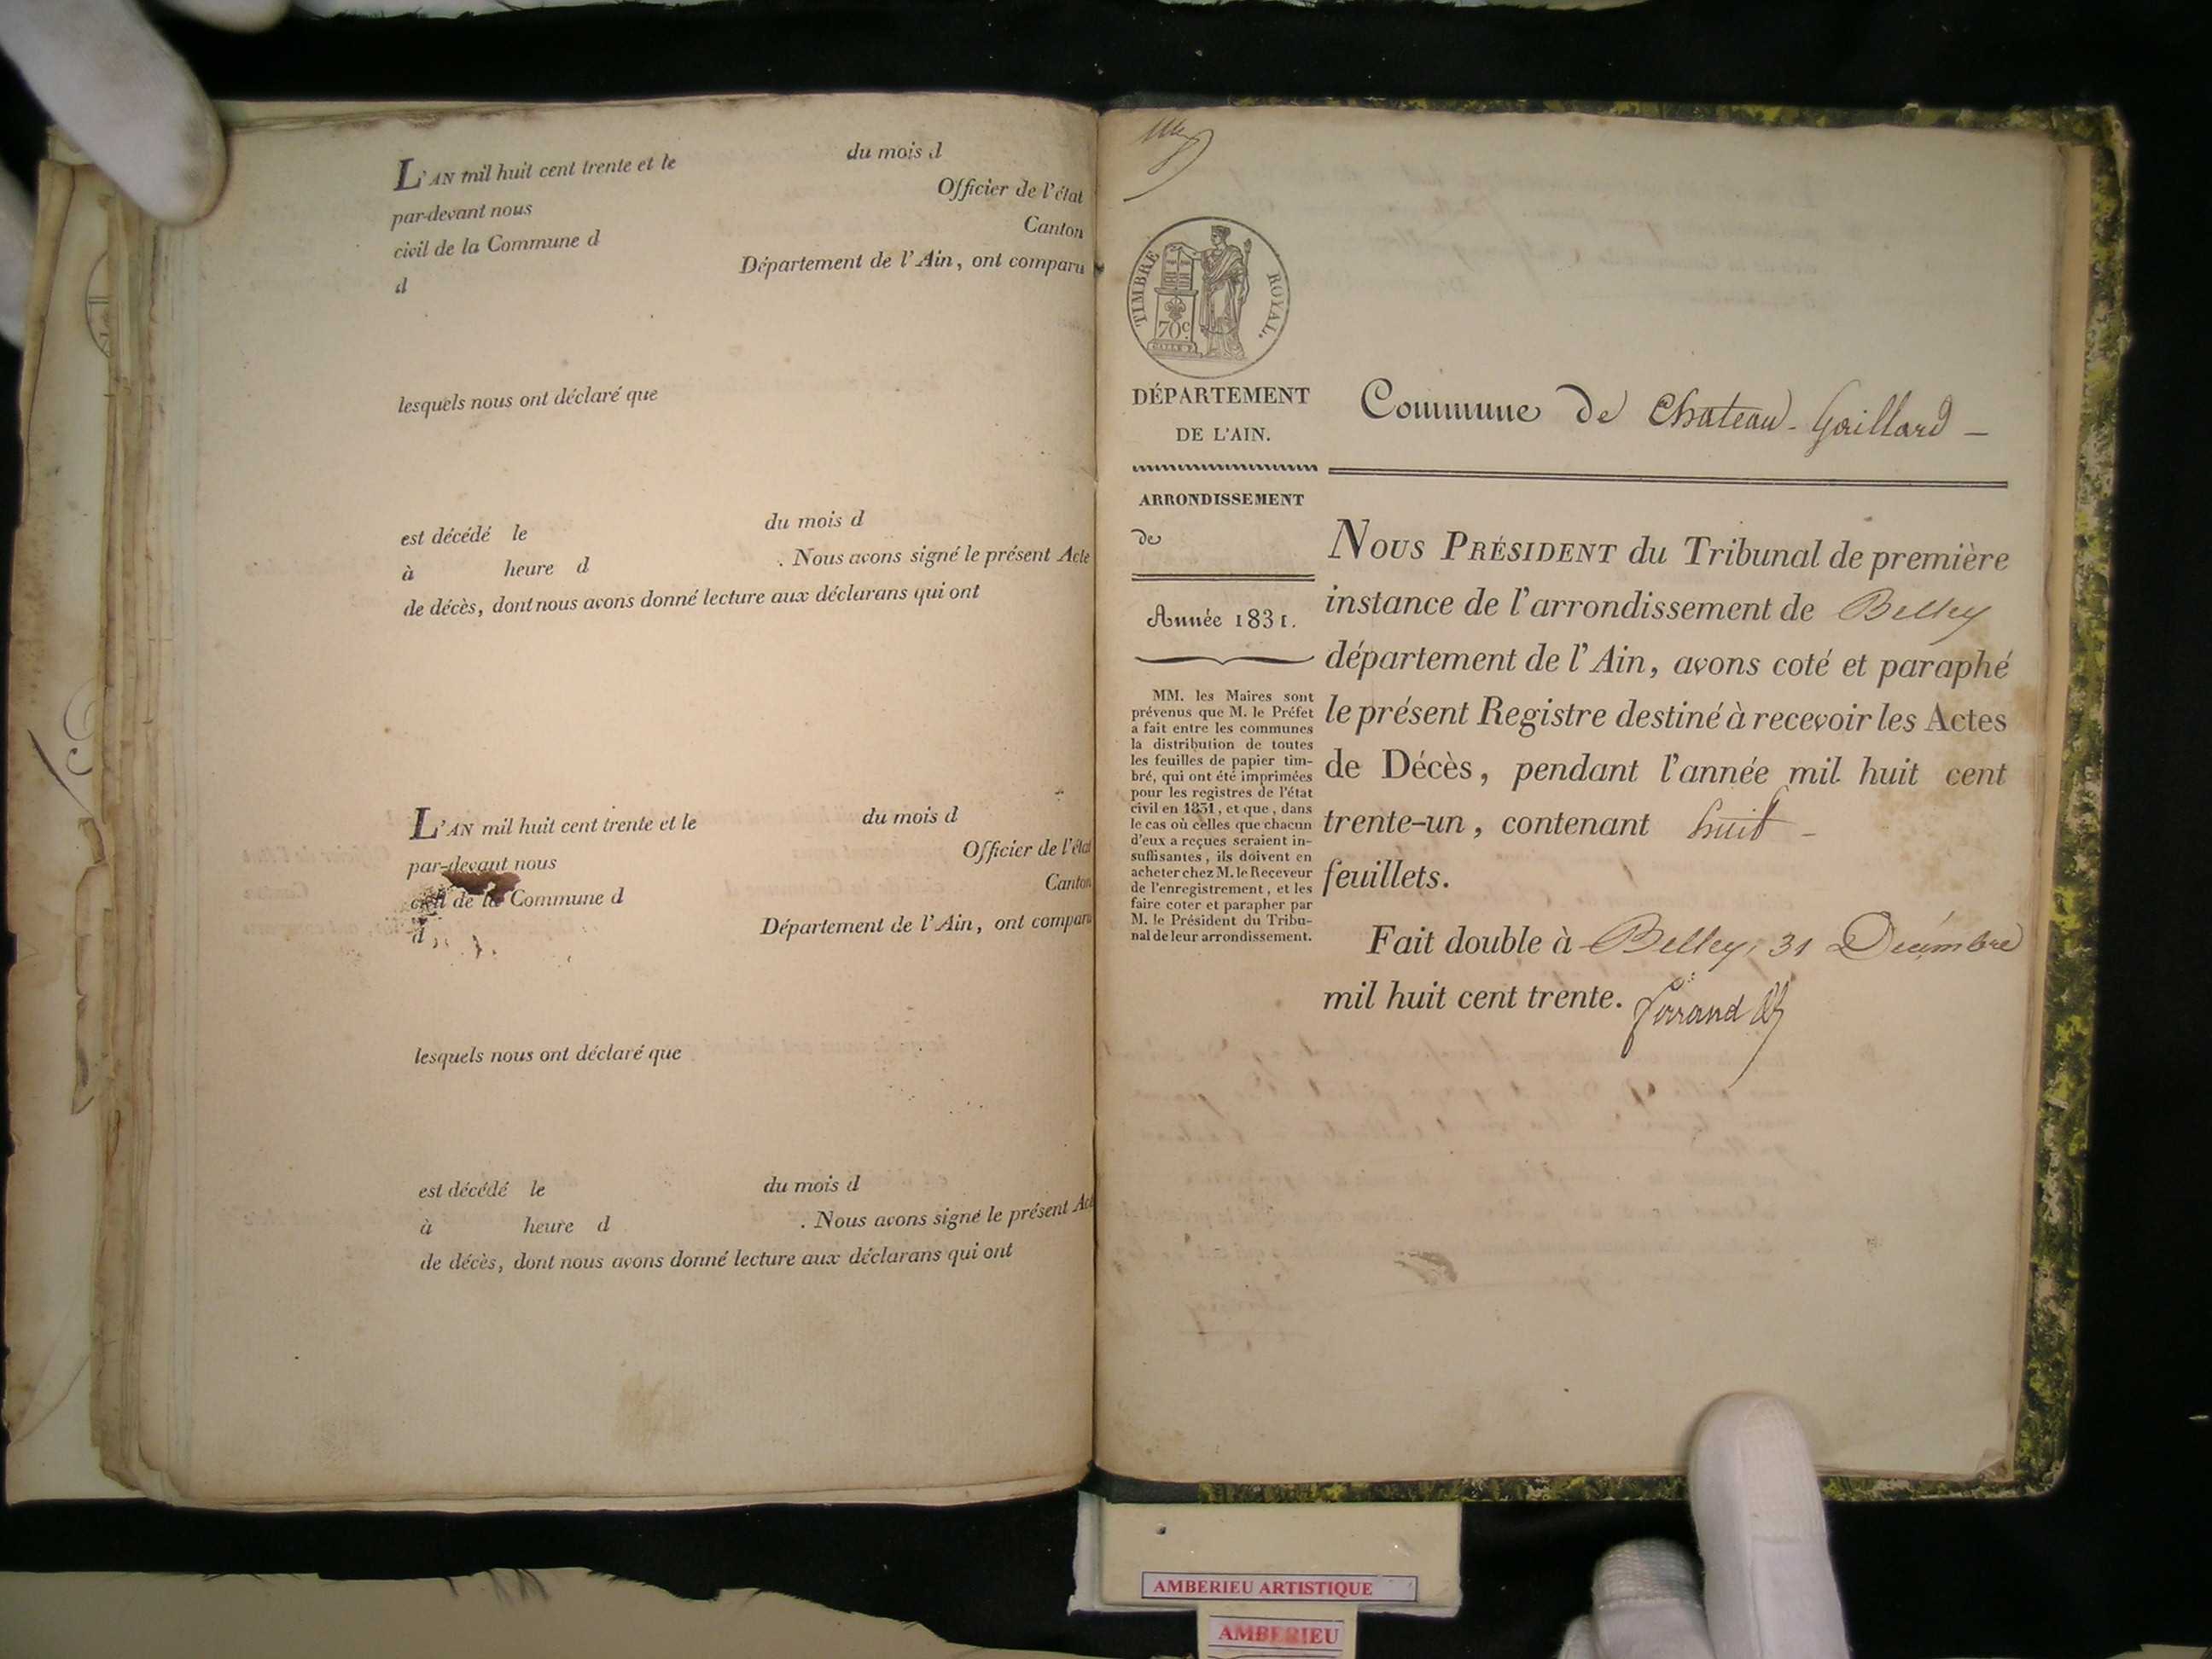 L'AN mil huit cent trente et le du mois d
par-devant nous Officier de l'état
civil de la Commune d Canton
d Département de l'Ain, ont comparu
lesquels nous ont déclaré que
est décédé le du mois d
à heure d . Nous avons signé le présent Acte
de décès, dont nous avons donné lecture aux déclarans qui ont
L'AN mil huit cent trente et le du mois d
par-devant nous Officier de l'état
civil de la Commune d Canton
d Département de l'Ain, ont comparu
lesquels nous ont déclaré que
est décédé le du mois d
à heure d . Nous avons signé le présent Act
de décès, dont nous avons donné lecture aux déclarans qui ont
TIMBRE ROYAL.
70c
DÉPARTEMENT
DE L'AIN.
ARRONDISSEMENT
de
Année 1831.
MM. les Maires sont
prévenus que M. le Préfet
a fait entre les communes
la distribution de toutes
les feuilles de papier tim-
bré, qui ont été imprimées
pour les registres de l'état
civil en 1831, et que, dans
le cas où celles que chacun
d'eux a reçues seraient in-
suffisantes, ils doivent en
acheter chez M. le Receveur
de l'enregistrement, et les
faire coter et parapher par
M. le Président du Tribu-
nal de leur arrondissement.
Commune de Chateau-Gaillard -
NOUS PRÉSIDENT du Tribunal de première
instance de l'arrondissement de Belley
département de l'Ain, avons coté et paraphé
le présent Registre destiné à recevoir les Actes
de Décès, pendant l'année mil huit cent
trente-un, contenant huit -
feuillets.
Fait double à Belley, 31 Décembre
mil huit cent trente.
AMBERIEU ARTISTIQUE
AMBERIEU